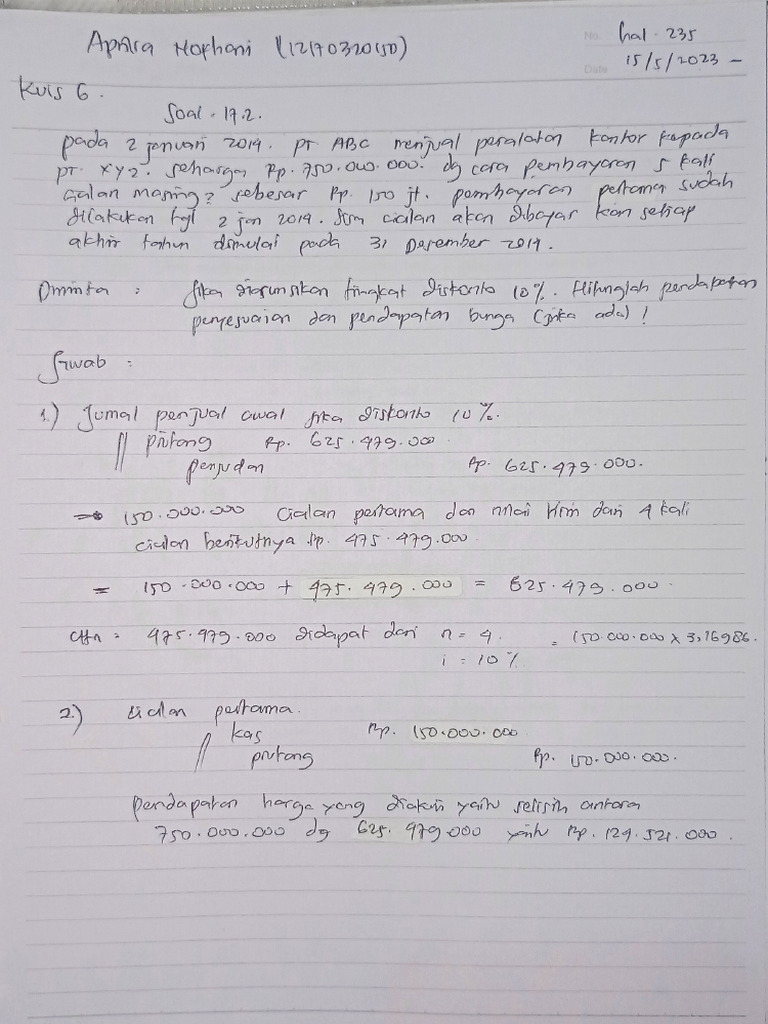 No. hal. 235
Aprilia Nofhani (12170320150)
Date 15/5/2023 -
Kuis 6.
Soal. 17.2.
pada 2 januari 2019. PT ABC menjual peralatan kantor kepada
PT. XYZ. seharga Rp. 750.000.000. dg cara pembayaran 5 kali
cicilan masing2 sebesar Rp. 150 jt. pembayaran pertama sudah
dilakukan tgl 2 jan 2019. Sisa cicilan akan dibayar kan setiap
akhir tahun dimulai pada 31 Desember 2019.
Diminta : jika diasumsikan tingkat diskonto 10%. Hitunglah pendapatan
penyesuaian dan pendapatan bunga (jika ada)!
Jawab :
1.) Jurnal penjual awal jika diskonto 10%.
// piutang Rp. 625.479.000
penjualan Rp. 625.479.000.
→ 150.000.000 cicilan pertama dan nilai kini dari 4 kali
cicilan berikutnya Rp. 475.479.000
= 150.000.000 + 475.479.000 = 625.479.000.
Cttn = 475.479.000 didapat dari n = 4. = 150.000.000 x 3,16986.
i = 10%
2.) cicilan pertama.
// kas Rp. 150.000.000
piutang Rp. 150.000.000.
pendapatan harga yang diakui yaitu selisih antara
750.000.000 dg 625.479.000 yaitu Rp. 124.521.000.